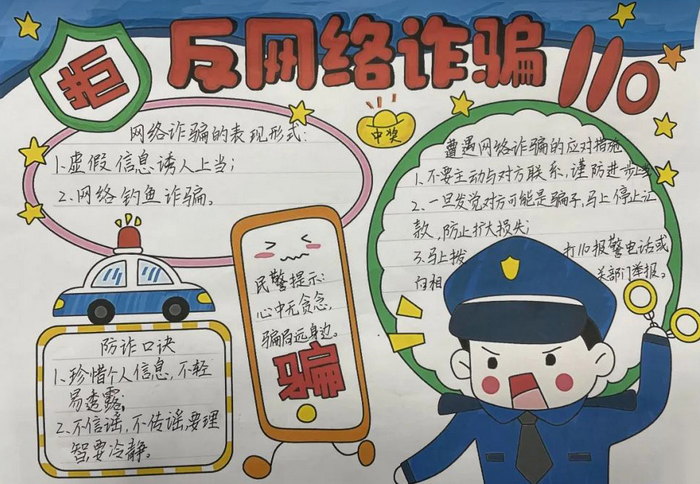 拒
反网络诈骗110
中奖
网络诈骗的表现形式:
1.虚假信息诱人上当;
2.网络钓鱼诈骗。
遭遇网络诈骗的应对措施
1.不要主动与对方联系,谨防进步
2.一旦发觉对方可能是骗子,马上停止汇
款,防止扩大损失;
3.马上拨 打110报警电话或
向相 关部门举报。
民警提示:
心中无贪念,
骗局远身边。
防诈口诀
1、珍惜个人信息,不轻
易透露;
2、不信谣,不传谣,要理
智,要冷静。